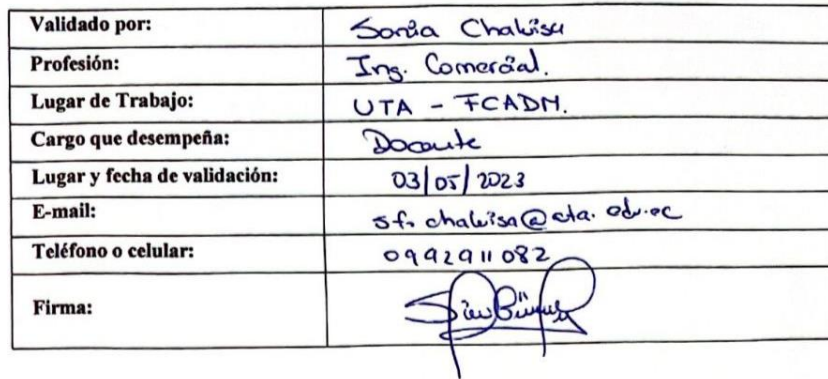 Validado por: Sonia Chaluisa
Profesión: Ing. Comercial.
Lugar de Trabajo: UTA - FCADM.
Cargo que desempeña: Docente
Lugar y fecha de validación: 03/05/2023
E-mail: sf.chaluisa@uta.edu.ec
Teléfono o celular: 0992911082
Firma: